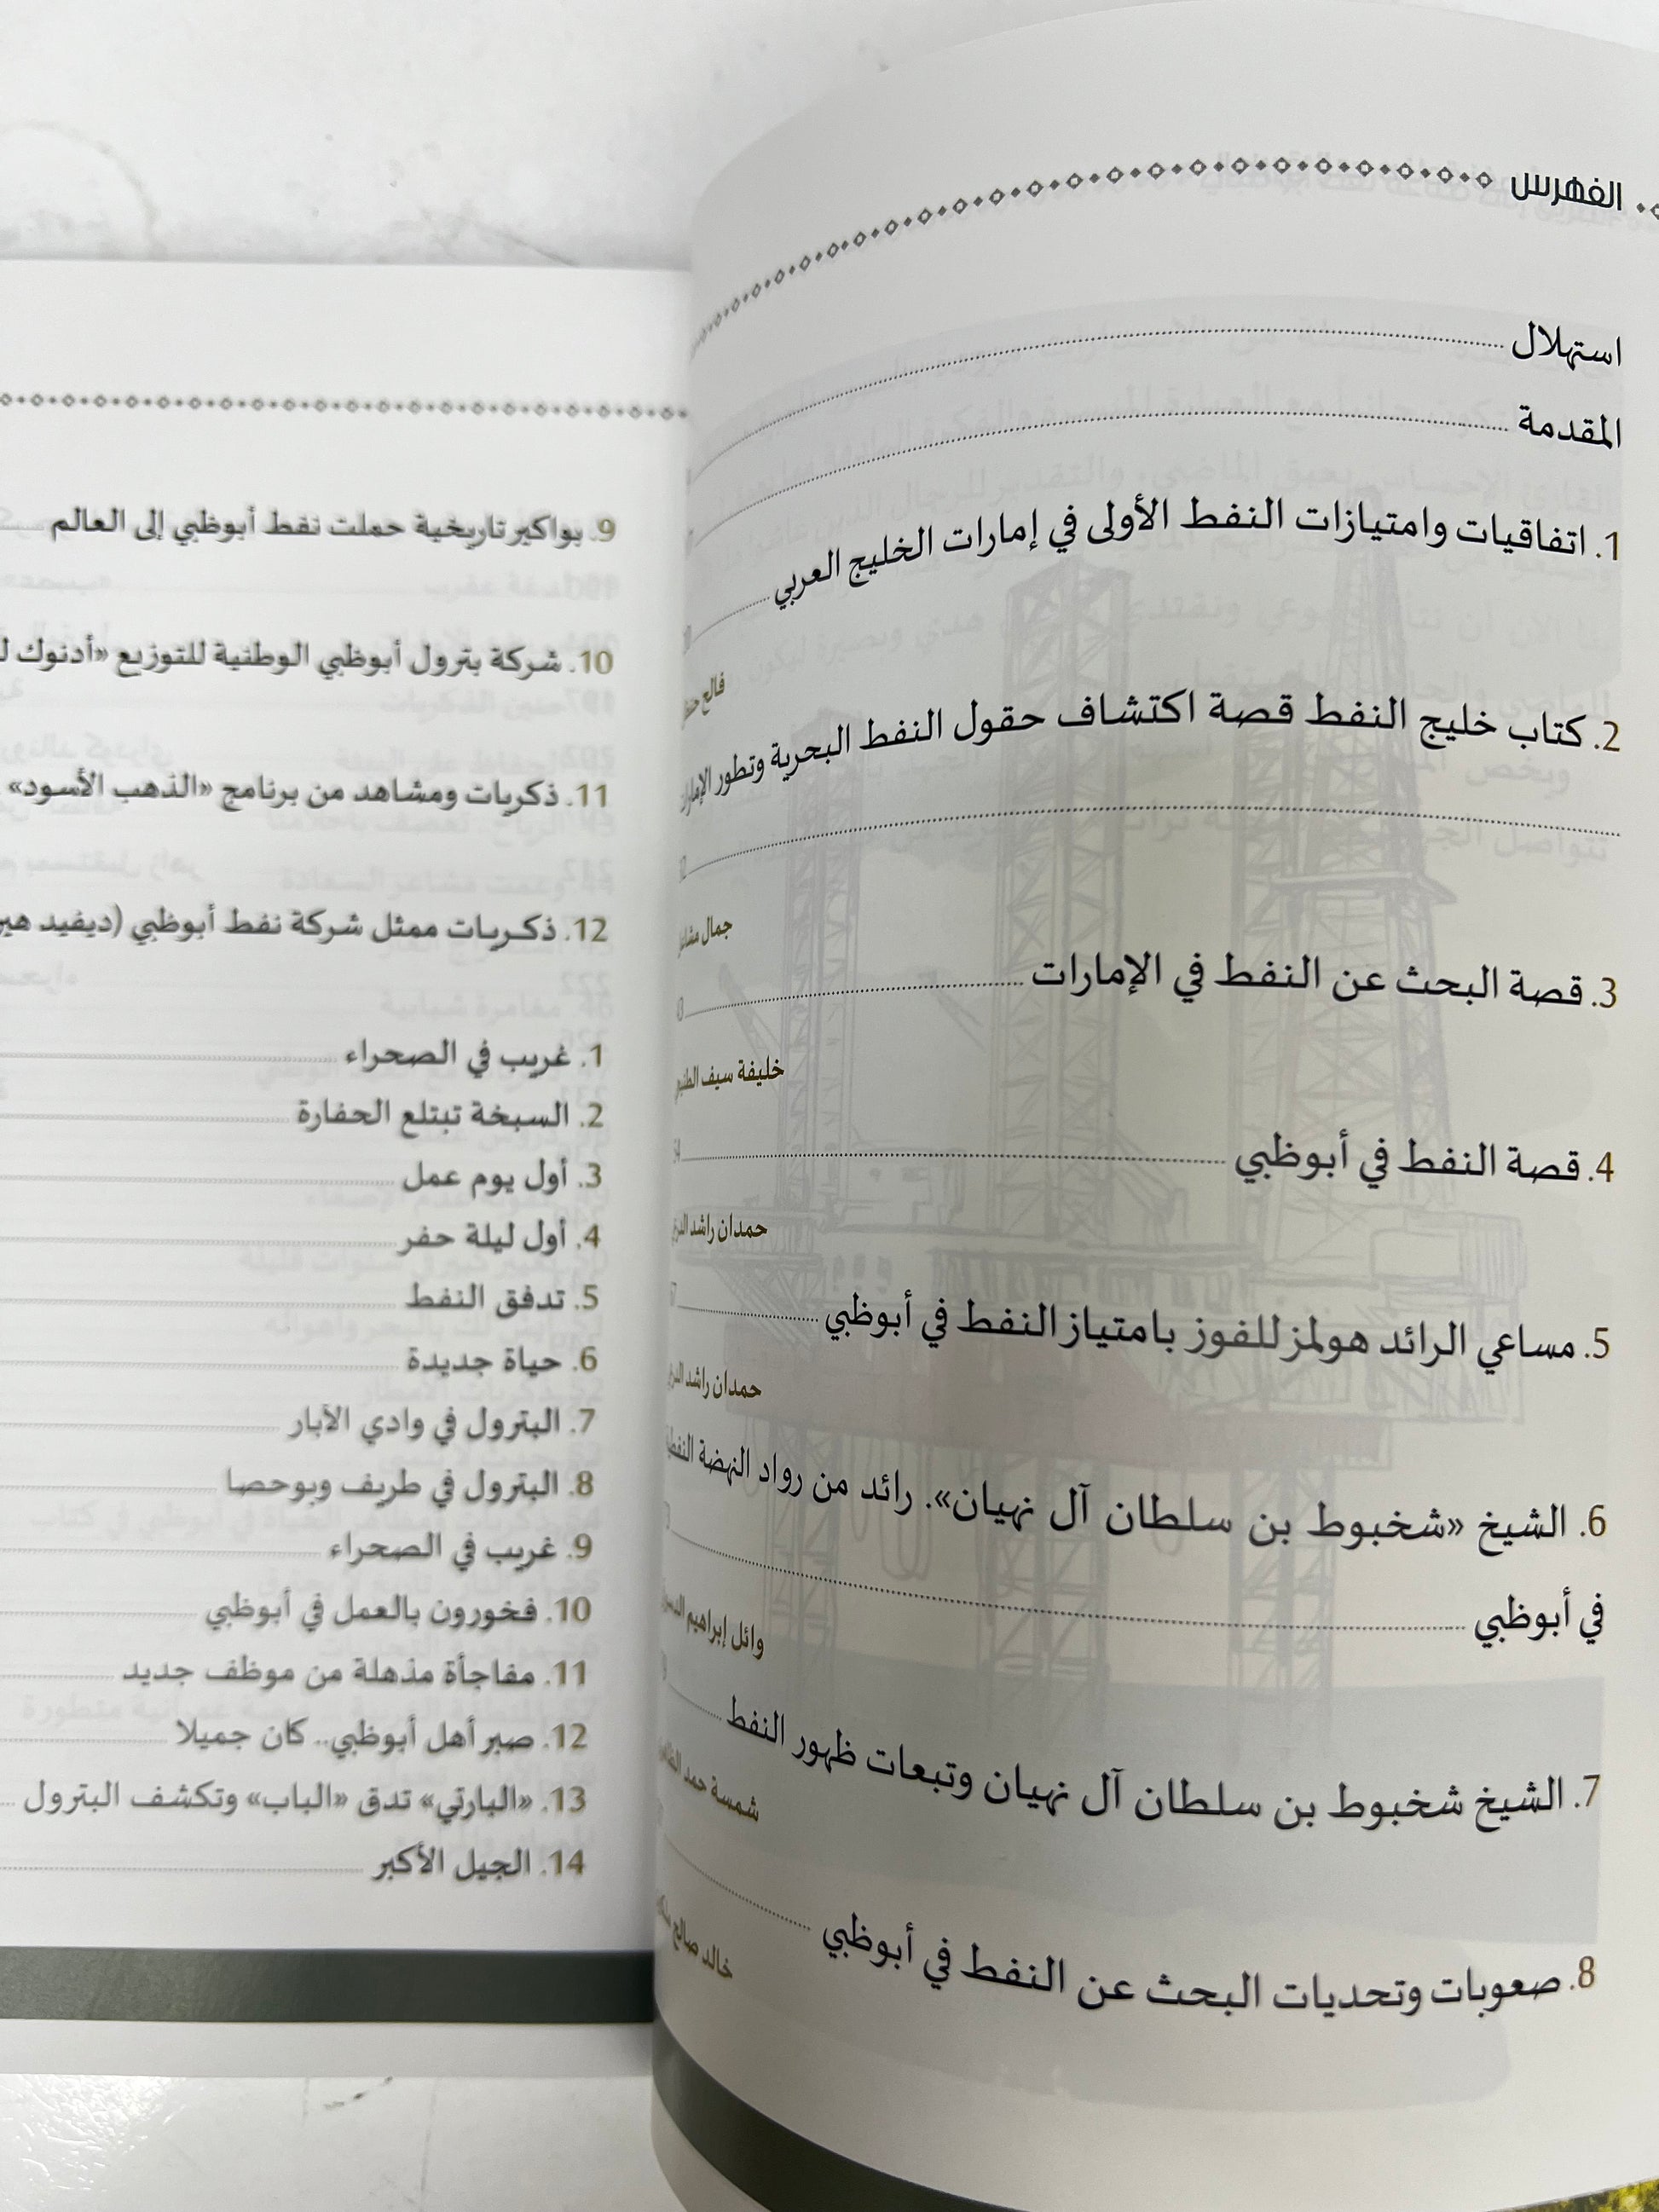 الفهرس
استهلال
المقدمة
1. اتفاقيات وامتيازات النفط الأولى في إمارات الخليج العربي
فالح
2. كتاب خليج النفط قصة اكتشاف حقول النفط البحرية وتطور
جمال
3. قصة البحث عن النفط في الإمارات
خليفة سيف
4. قصة النفط في أبوظبي
حمدان راشد
5. مساعي الرائد هولمز للفوز بامتياز النفط في أبوظبي
حمدان راشد
6. الشيخ «شخبوط بن سلطان آل نهيان». رائد من رواد النهضة
في أبوظبي
وائل إبراهيم
7. الشيخ شخبوط بن سلطان آل نهيان وتبعات ظهور النفط
شمسة حمد
8. صعوبات وتحديات البحث عن النفط في أبوظبي
خالد صالح
9. بواكير تاريخية حملت نفط أبوظبي إلى العالم
10. شركة بترول أبوظبي الوطنية للتوزيع «أدنوك
11. ذكريات ومشاهد من برنامج «الذهب الأسود»
12. ذكريات ممثل شركة نفط أبوظبي (ديفيد
1. غريب في الصحراء
2. السبخة تبتلع الحفارة
3. أول يوم عمل
4. أول ليلة حفر
5. تدفق النفط
6. حياة جديدة
7. البترول في وادي الآبار
8. البترول في طريف وبوحصا
9. غريب في الصحراء
10. فخورون بالعمل في أبوظبي
11. مفاجأة مذهلة من موظف جديد
12. صبر أهل أبوظبي.. كان جميلا
13. «البارتي» تدق «الباب» وتكشف البترول
14. الجيل الأكبر